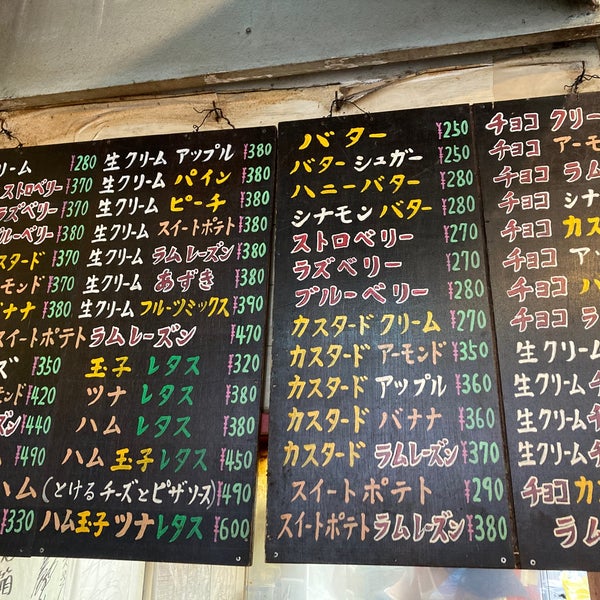 リーム ¥280 生クリーム アップル ¥380
ストロベリー ¥370 生クリーム パイン ¥380
ラズベリー ¥370 生クリーム ピーチ ¥380
ブルーベリー ¥380 生クリーム スイートポテト ¥380
カスタード ¥370 生クリーム ラムレーズン ¥380
モンド ¥370 生クリーム あずき ¥380
バナナ ¥380 生クリーム フルーツミックス ¥390
スイートポテト ラムレーズン ¥470
ズ ¥350 玉子 レタス ¥320
モンド ¥420 ツナ レタス ¥380
ズン ¥440 ハム レタス ¥380
¥490 ハム 玉子 レタス ¥450
ハム (とけるチーズとピザソース) ¥490
¥330 ハム玉子 ツナレタス ¥600
バター ¥250
バター シュガー ¥250
ハニーバター ¥280
シナモンバター ¥280
ストロベリー ¥270
ラズベリー ¥270
ブルーベリー ¥280
カスタード クリーム ¥270
カスタード アーモンド ¥350
カスタード アップル ¥360
カスタード バナナ ¥360
カスタード ラムレーズン ¥370
スイートポテト ¥290
スイートポテト ラムレーズン ¥380
チョコ クリー
チョコ アーモ
チョコ ラム
チョコ シナ
チョコ カス
チョコ アッ
チョコ バ
チョコ ラ
生クリーム
生クリーム チ
生クリーム チ
生クリーム チ
チョコ カス
ラム